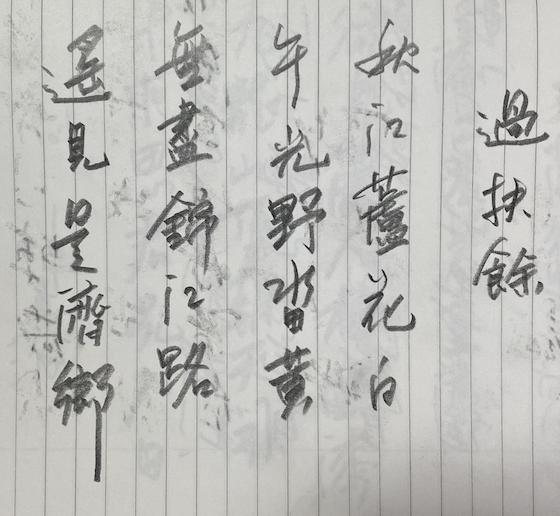 過扶餘
秋江蘆花白
午光野畓黃
無盡錦江路
遙見是濟鄉